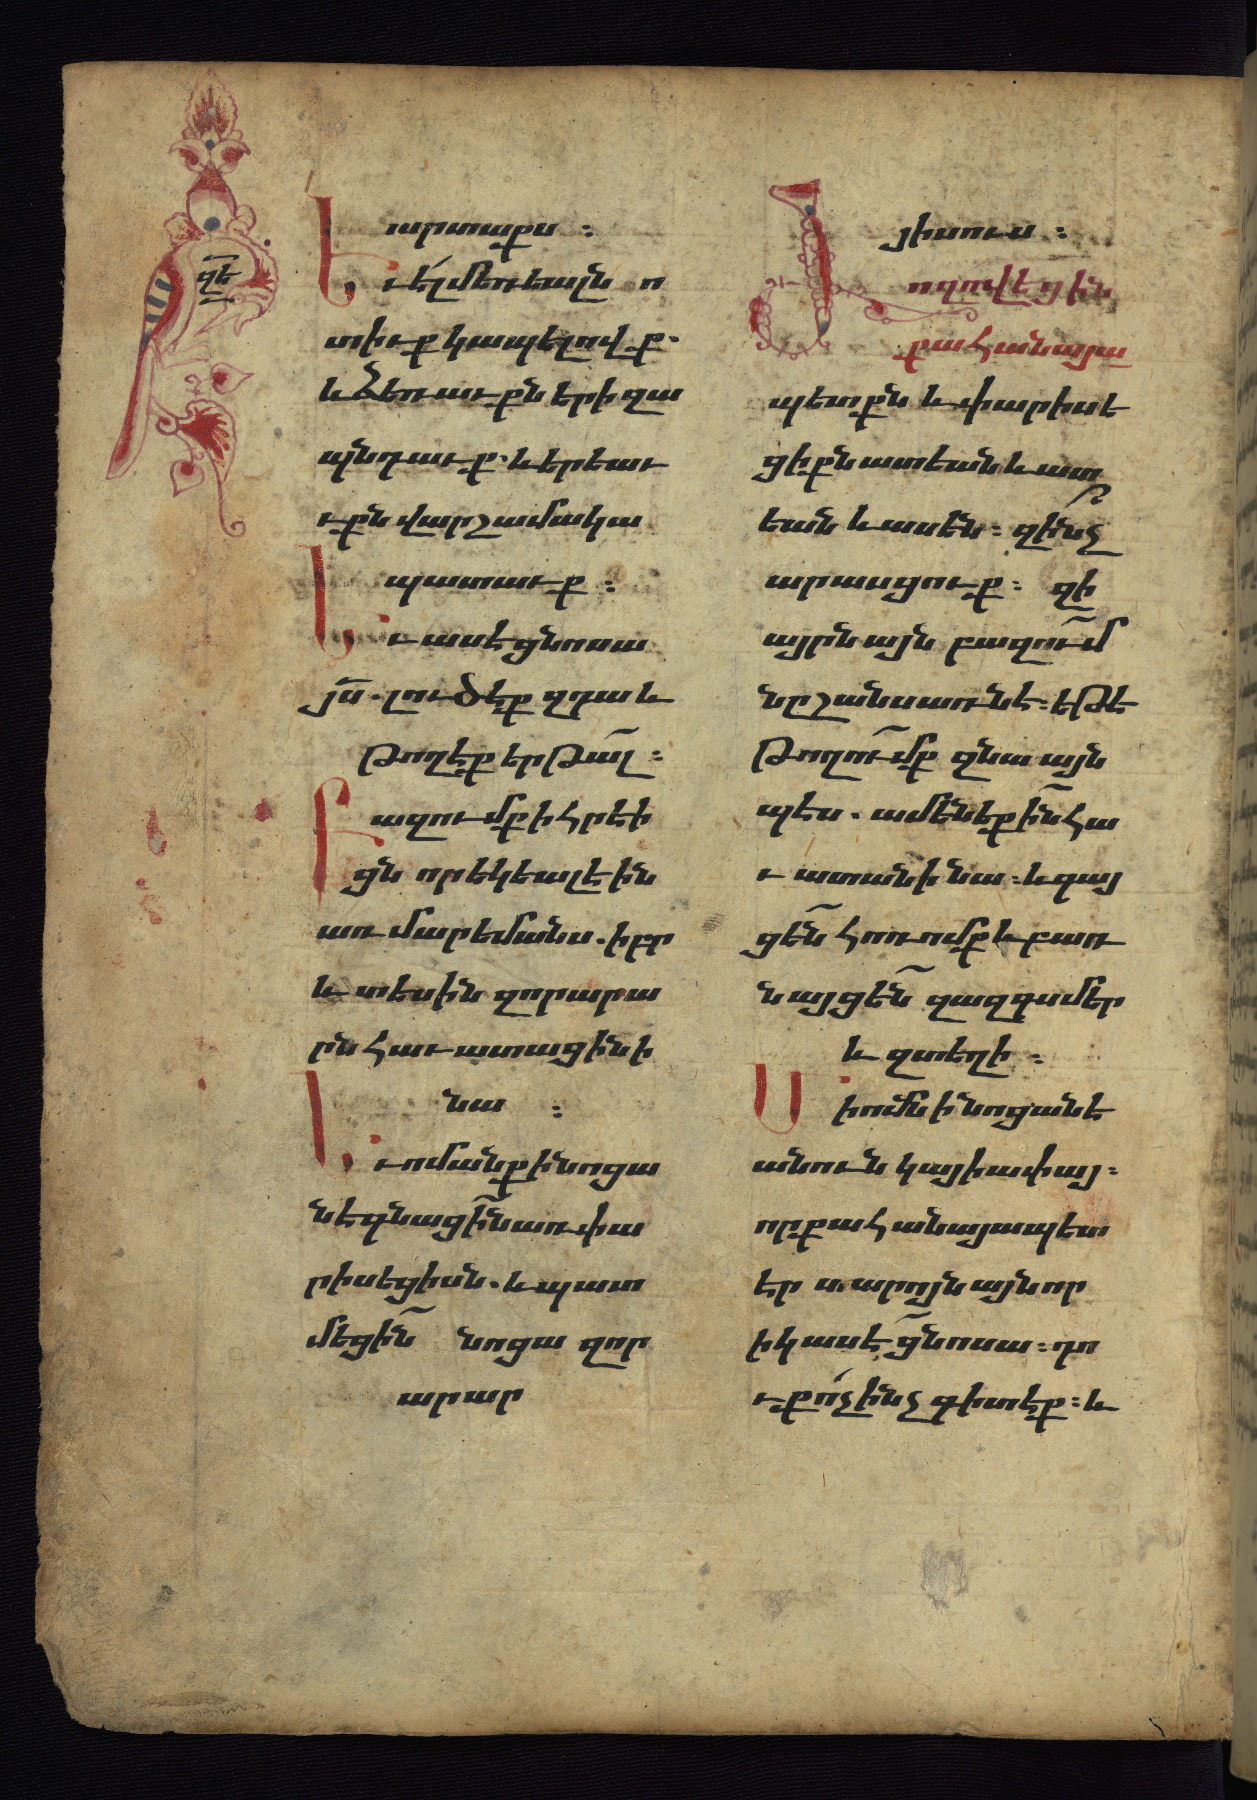 զե
արտաքս :
Եւ ել մեռեալն ո
տիւք կապելովք.
և ձեռաւքն երիզա
պնդաւք. և երեսա
ւքն վարշամակա
պատաւք :
Եւ ասէ ցնոսա
յս. լուծէք զդա և
թողէք երթալ :
Բազումք ի հրէի
ցն որ եկեալ էին
առ մարեմանս. իբր
և տեսին զոր արա
րն հաւատացին ի
նա :
Եւ ոմանք ի նոցա
նէ գնացին առ փա
րիսեցիսն. և պատ
մեցին նոցա զոր
արար
յիսուս :
Ժողովեցին
քահանայա
պետքն և փարիսե
ցիքն ատեան և ատ
եան և ասեն : զինչ
արասցուք : զի
այրն այն բազում
նշանս առնէ : եթե
թողումք զնա այն
պես. ամենեքին հա
ւատան ի նա : և գայ
ցեն հռոմք և բառ
նայցեն զազգս մեր
և զտեղի :
Մի ոմն ի նոցանէ
անուն կայիափայ :
որ քահանայապետ
էր տարոյն այնոր
իկ ասէ ցնոսա : դո
ւք ոչ ինչ գիտէք : և